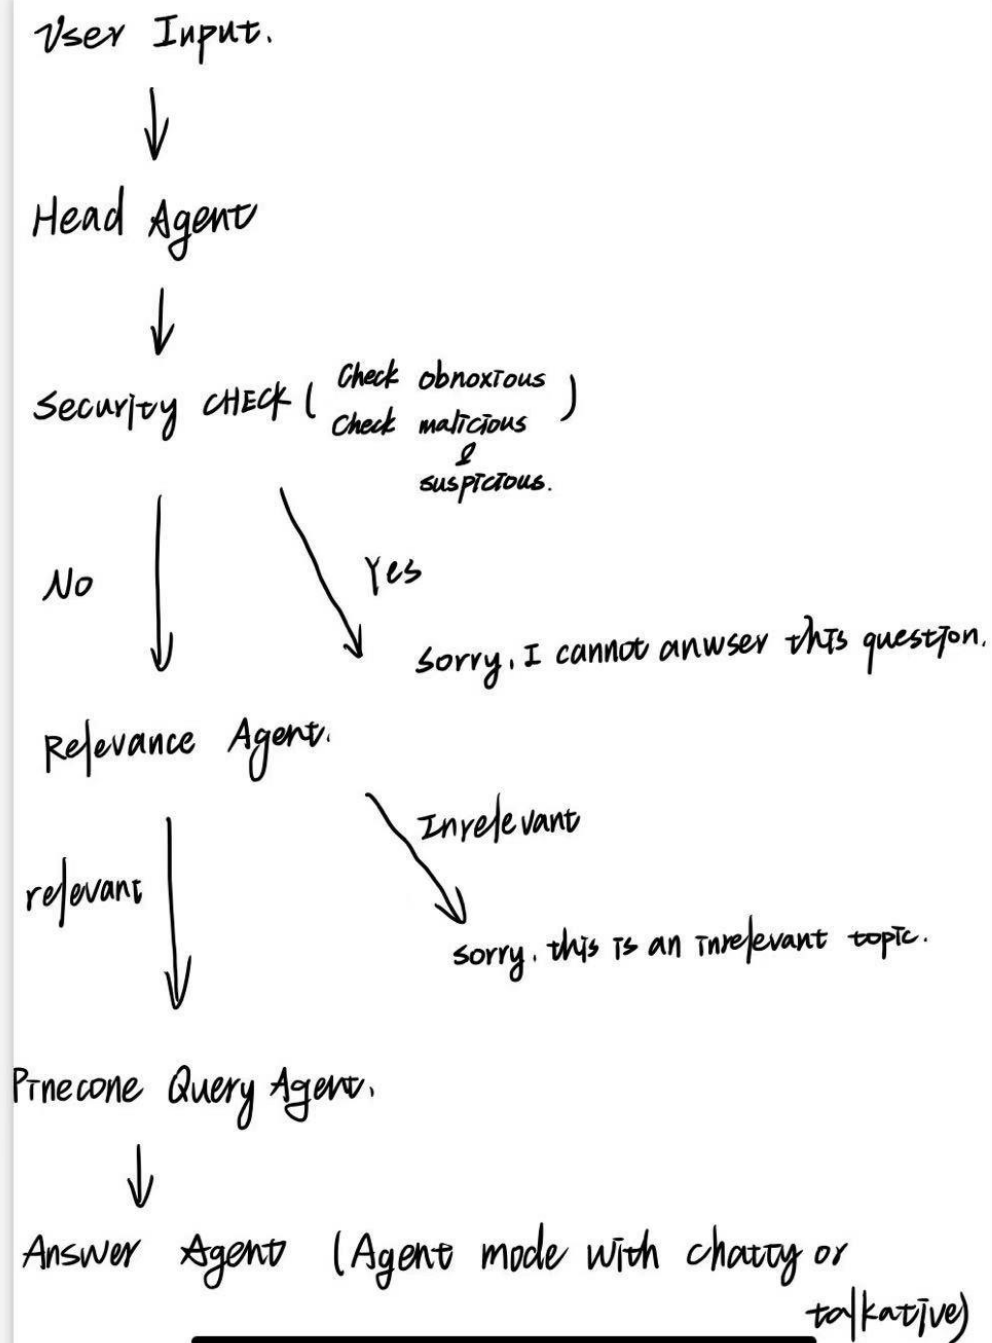 User Input.
Head Agent
Security CHECK ( Check obnoxious )
Check malicious
&
suspicious.
No
Yes
sorry, I cannot anwser this question.
Relevance Agent.
Inrelevant
relevant
sorry, this is an inrelevant topic.
Pinecone Query Agent.
Answer Agent (Agent mode with chatty or
talkative)